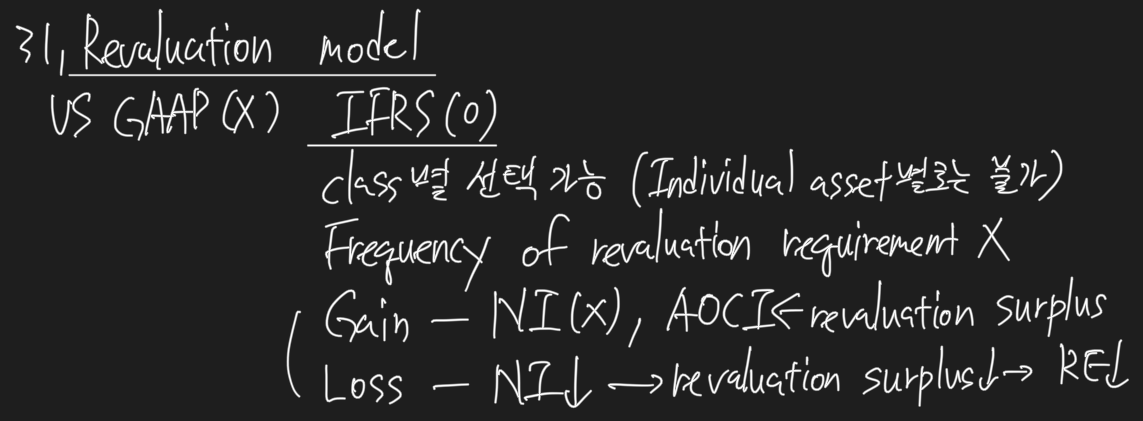 31, Revaluation model
US GAAP(X) IFRS(O)
class별 선택 가능 (Individual asset별로는 불가)
Frequency of revaluation requirement X
Gain - NI(X), AOCI← revaluation surplus
Loss - NI↓ → revaluation surplus↓→ RE↓